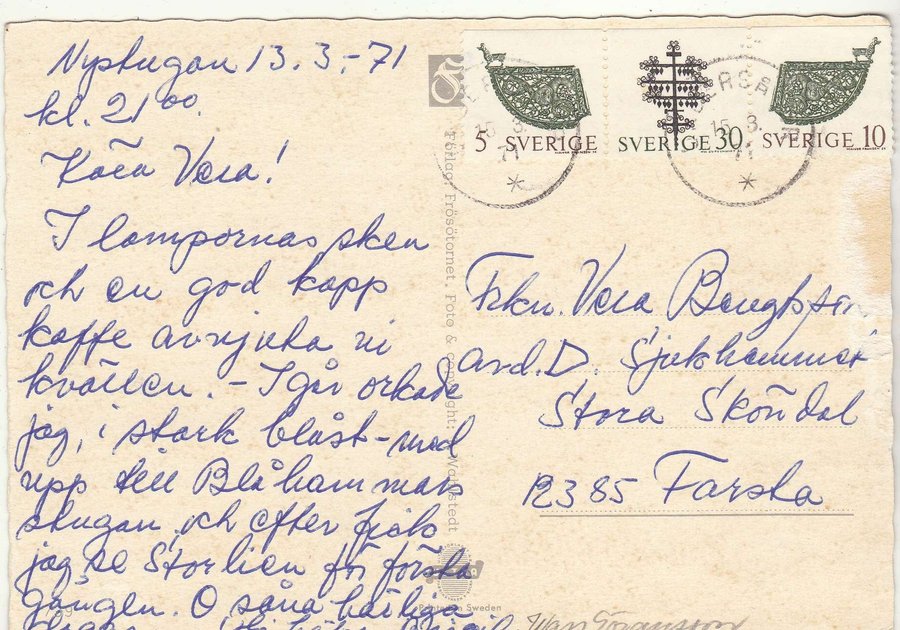 Nystugan 13.3.-71
kl. 21⁰⁰.
Kära Vera!
I lampornas sken
och en god kopp
kaffe avnjuta vi
kvällen. - Igår orkade
jag, i stark blåst-med
upp till Blåhammar
stugan och efter fick
jag se Storlien för första
gången. O såna härliga
5 SVERIGE
SVERIGE 30
SVERIGE 10
15. 3. 71
Frkn. Vera Bengtsson
avd. D. Sjukhemmet
Stora Sköndal
12385 Farsta
Förlag: Frösötornet. Foto & copyright:
Printed in Sweden